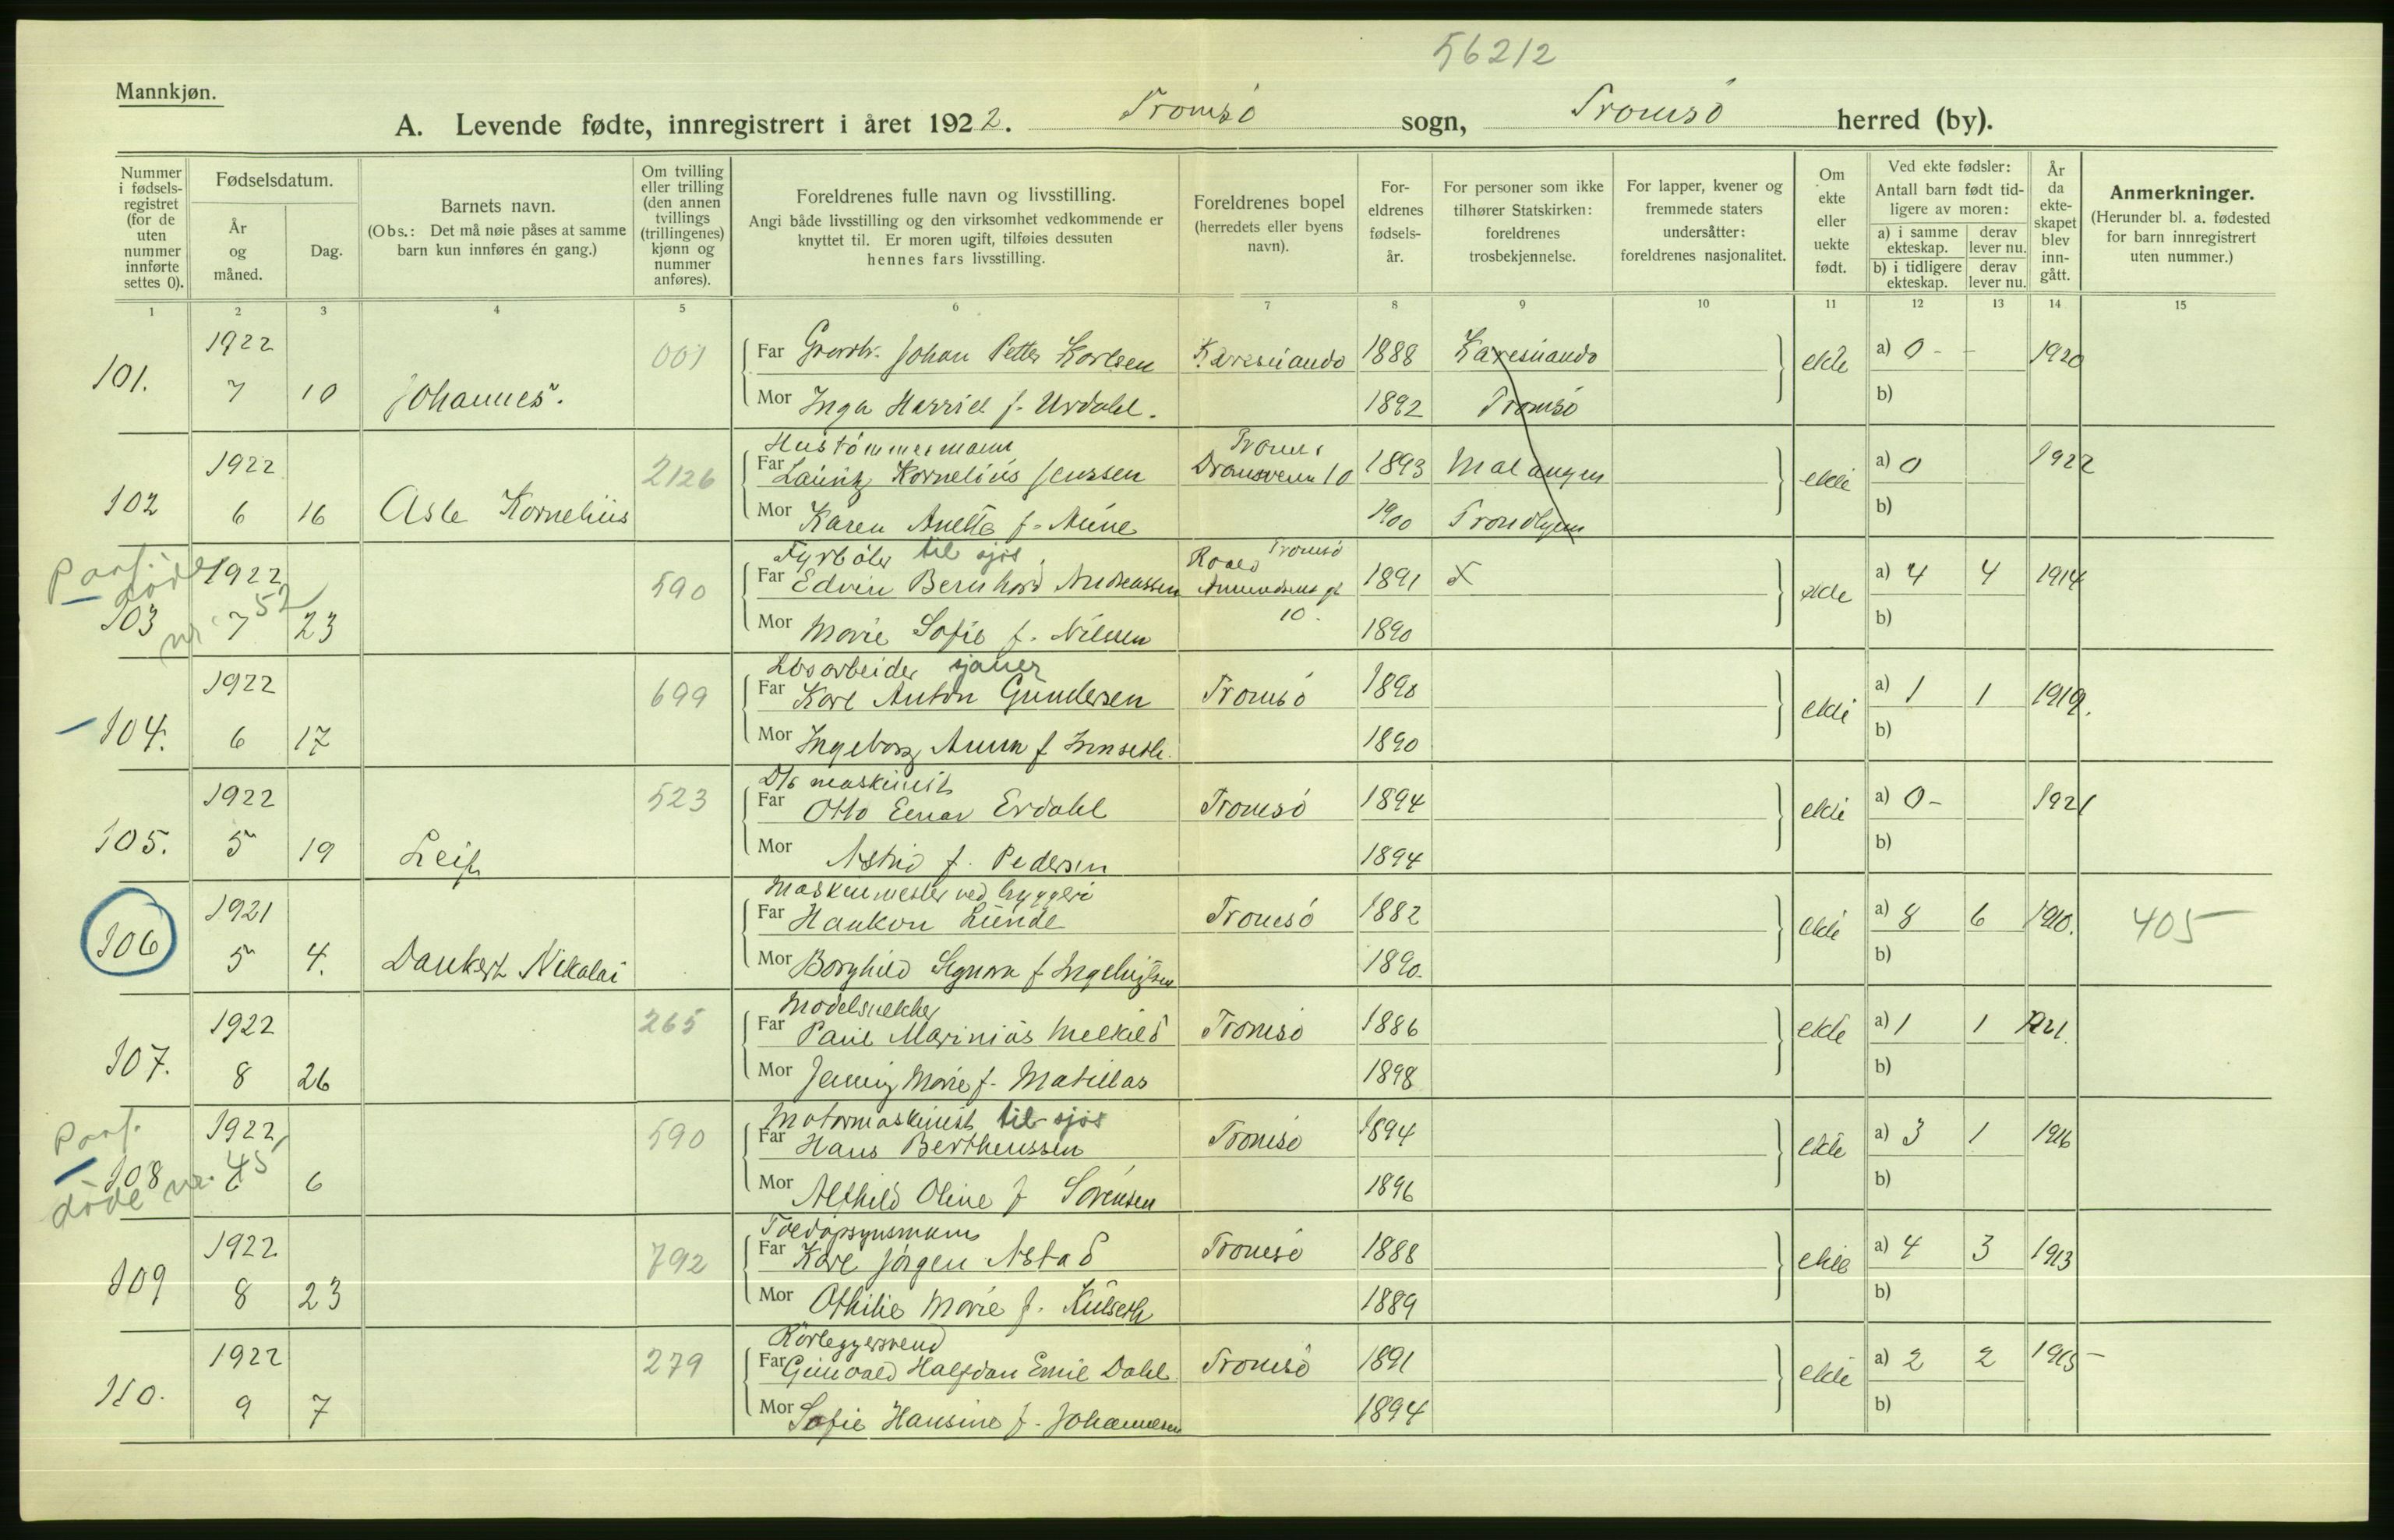 56212
Mannkjøn.
A. Levende fødte, innregistrert i året 1922. Tromsö sogn, Tromsö herred (by).
Nummer i fødsels-registret (for de uten nummer innførte settes 0).
Fødselsdatum.
År og måned.
Dag.
Barnets navn.
(Obs.: Det må nøie påses at samme barn kun innføres én gang.)
Om tvilling eller trilling (den annen tvillings (trillingenes) kjønn og nummer anføres).
Foreldrenes fulle navn og livsstilling.
Angi både livsstilling og den virksomhet vedkommende er knyttet til. Er moren ugift, tilføies dessuten hennes fars livsstilling.
Foreldrenes bopel (herredets eller byens navn).
For-eldrenes fødsels-år.
For personer som ikke tilhører Statskirken: foreldrenes trosbekjennelse.
For lapper, kvener og fremmede staters undersåtter: foreldrenes nasjonalitet.
Om ekte eller uekte født.
Ved ekte fødsler:
Antall barn født tid-ligere av moren:
a) i samme ekteskap.
derav lever nu.
b) i tidligere ekteskap.
derav lever nu.
År da ekte-skapet blev inn-gått.
Anmerkninger.
(Herunder bl. a. fødested for barn innregistrert uten nummer.)
1 2 3 4 5 6 7 8 9 10 11 12 13 14 15
1922 001 Far Johan Petter Karlsen Karesuando 1888 Karesuando ekte a) 0 - - 1920
101. 7 10 Johannes. Mor Inga Harriet f. Urdahl. 1892 Tromsö b)
Hustömmermann Troms
1922 2126 Far Lauritz Kornelius Jenssen Dramsveien 10 1893 Malangen ekte a) 0 1922
102 6 16 Asle Kornelius Mor Karen Anetta f. Aune 1900 Trondhjem b)
Fyrböter til sjös Tromsö
döde 1922 590 Far Edvin Bernhard Andreassen Roald Amundsens pl 10. 1891 x ekte a) 4 4 1914
103 nr 52 7 23 Mor Marie Sofie f. Nilssen 1890 b)
Lösarbeider sjauer
1922 699 Far Karl Anton Gundersen Tromsö 1890 ekte a) 1 1 1919.
104. 6 17 Mor Ingeborg Anna f 1890 b)
D/s maskinist
1922 523 Far Otto Einar Erdahl Tromsö 1894 ekte a) 0 - 1921
105. 5 19 Leif Mor Astrid f. Pedersen 1894 b)
Maskinmester ved bryggeri
1921 Far Haakon Lunde Tromsö 1882 ekte a) 8 6 1910. 405
106 5 4. Dankert Nikolai Mor Borghild Signora f Ingebrigtsen 1890. b)
Modelsnekker
1922 265 Far Paul Marinius Melkild Tromsö 1886 ekte a) 1 1 1921.
107. 8 26 Mor Jenny Marie f. Matillas 1898 b)
Motormaskinist til sjös
1922 590 Far Hans Bertheussen Tromsö 1894 ekte a) 3 1 1916
108 6 6 Mor Alfhild Oline f Sörensen 1896 b)
döde nr. 45
Toldopsynsmann
1922 792 Far Karl Jörgen Astad Tromsö 1888 ekte a) 4 3 1913
109 8 23 Mor Othilie Marie f. Kulseth 1889 b)
Rörleggersvend
1922 279 Far Gunvald Halfdan Emil Dahl Tromsö 1891 ekte a) 2 2 1915
110. 9 7 Mor Sofie Hansine f. Johannesen 1894 b)